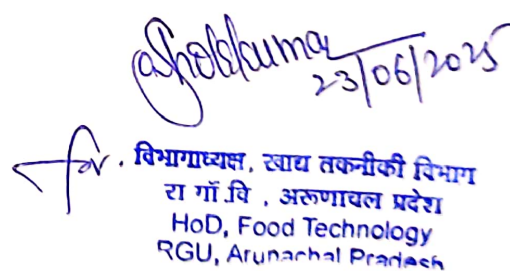 Ashokkumar
23/06/2025
for. विभागाध्यक्ष, खाद्य तकनीकी विभाग
रा गाॅ.वि , अरूणाचल प्रदेश
HoD, Food Technology
RGU, Arunachal Pradesh